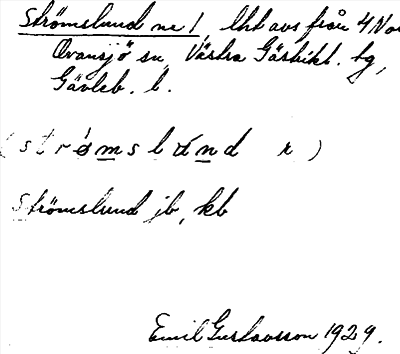 Strömslund nr 1, lht avs från 4 Nor
Ovansjö sn, Västra Gästrikl. tg,
Gävleb. l.
(strömslund r)
Strömslund jb, kb
Emil Gustavsson 1929.